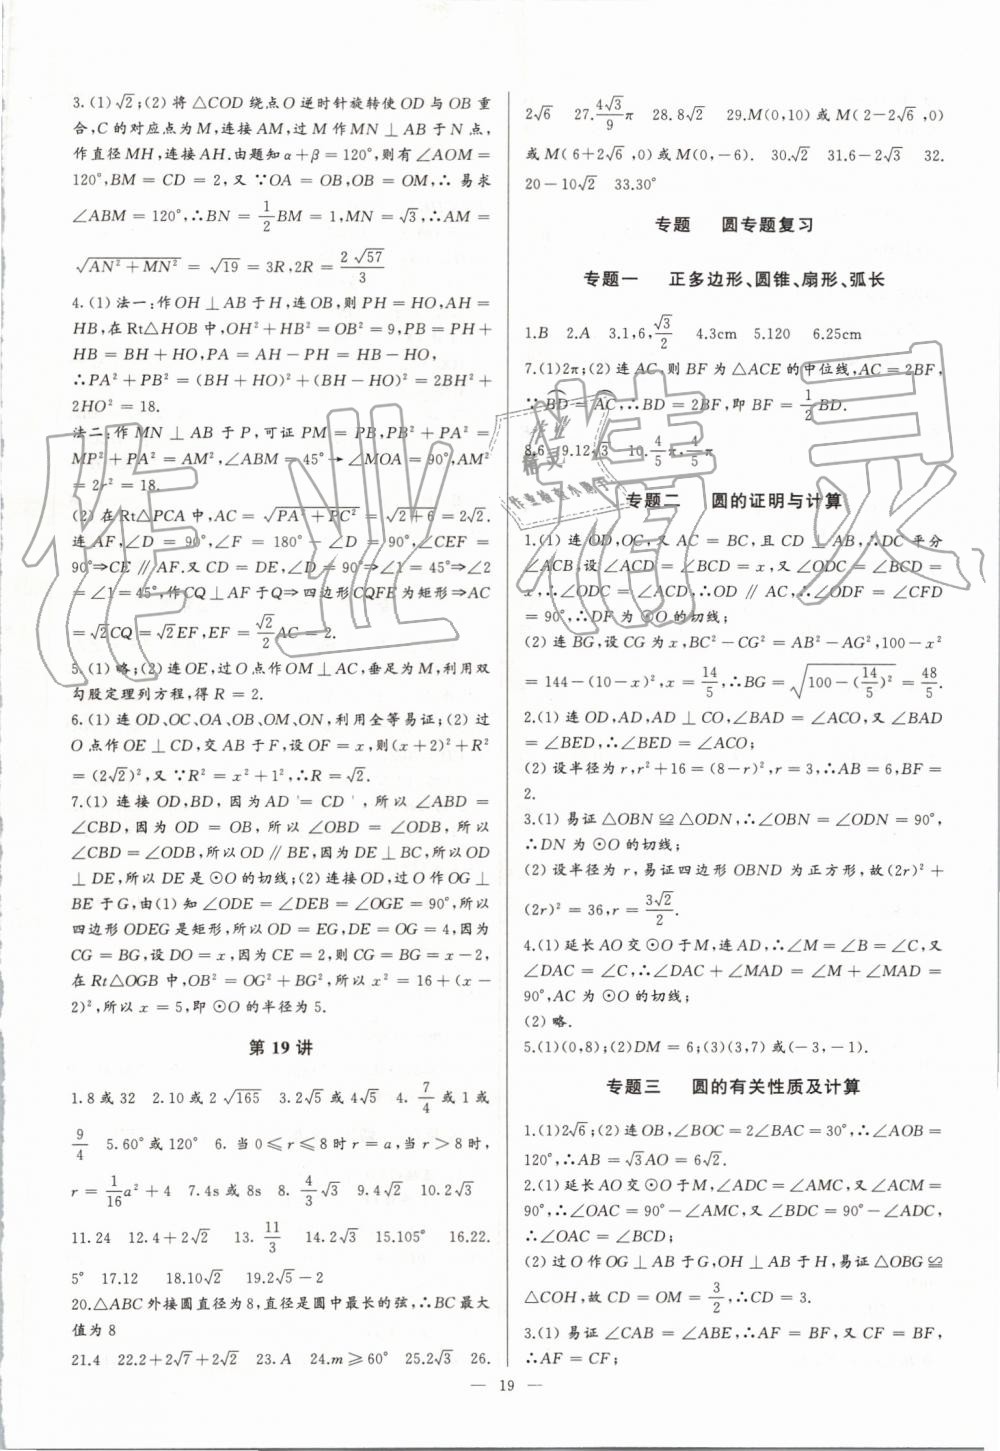 3.(1)√2;(2) 将 △COD 绕点 O 逆时针旋转使 OD 与 OB 重
合,C 的对应点为 M,连接 AM,过 M 作 MN ⊥ AB 于 N 点,
作直径 MH,连接 AH.由题知 α+β = 120°,则有 ∠AOM =
120°,BM = CD = 2,又 ∵OA = OB,OB = OM,∴ 易求
∠ABM = 120°,∴BN = 1/2 BM = 1,MN = √3,∴AM =
√(AN²+MN²) = √19 = 3R,2R = 2√57/3
4.(1) 法一:作 OH ⊥ AB 于 H,连 OB,则 PH = HO,AH =
HB,在 Rt△HOB 中,OH²+HB² = OB² = 9,PB = PH+
HB = BH+HO,PA = AH-PH = HB-HO,
∴PA²+PB² = (BH+HO)²+(BH-HO)² = 2BH²+
2HO² = 18.
法二:作 MN ⊥ AB 于 P,可证 PM = PB,PB²+PA² =
MP²+PA² = AM²,∠ABM = 45° → ∠MOA = 90°,AM²
= 2r² = 18.
(2) 在 Rt△PCA 中,AC = √(PA²+PC²) = √(2+6) = 2√2.
连 AF,∠D = 90°,∠F = 180°-∠D = 90°,∠CEF =
90°⇒CE ∥ AF.又 CD = DE,∠D = 90°⇒∠1 = 45°⇒∠2
= ∠1 = 45°,作 CQ ⊥ AF 于 Q⇒四边形 CQFE 为矩形⇒AC
= √2CQ = √2EF,EF = √2/2 AC = 2.
5.(1) 略;(2) 连 OE,过 O 点作 OM ⊥ AC,垂足为 M,利用双
勾股定理列方程,得 R = 2.
6.(1) 连 OD、OC、OA、OB、OM、ON,利用全等易证;(2) 过
O 点作 OE ⊥ CD,交 AB 于 F,设 OF = x,则(x+2)²+R²
= (2√2)²,又 ∵R² = x²+1²,∴R = √2.
7.(1) 连接 OD,BD,因为 AD '= CD ',所以 ∠ABD =
∠CBD,因为 OD = OB,所以 ∠OBD = ∠ODB,所以
∠CBD = ∠ODB,所以 OD ∥ BE,因为 DE ⊥ BC,所以 OD
⊥ DE,所以 DE 是 ⊙O 的切线;(2) 连接 OD,过 O 作 OG ⊥
BE 于 G,由(1) 知 ∠ODE = ∠DEB = ∠OGE = 90°,所以
四边形 ODEG 是矩形,所以 OD = EG,DE = OG = 4,因为
CG = BG,设 DO = x,因为 CE = 2,则 CG = BG = x-2,
在 Rt△OGB 中,OB² = OG²+BG²,所以 x² = 16+(x-
2)²,所以 x = 5,即 ⊙O 的半径为 5.
第 19 讲
1.8 或 32 2.10 或 2 √165 3.2√5 或 4√5 4. 7/4 或 1 或
9/4 5.60° 或 120° 6. 当 0 ≤ r ≤ 8 时 r = a,当 r > 8 时,
r = 1/16 a²+4 7.4s 或 8s 8. 4/3 √3 9.4√2 10.2√3
11.24 12.4+2√2 13. 11/3 14.2√3 15.105° 16.22.
5° 17.12 18.10√2 19.2√5-2
20.△ABC 外接圆直径为 8,直径是圆中最长的弦,∴BC 最大
值为 8
21.4 22.2+2√7+2√2 23.A 24.m ≥ 60° 25.2√3 26.
2√6 27. 4√3/9 π 28.8√2 29.M(0,10) 或 M( 2-2√6 ,0)
或 M( 6+2√6 ,0) 或 M(0,-6). 30.√2 31.6-2√3 32.
20-10√2 33.30°
专题 圆专题复习
专题一 正多边形、圆锥、扇形、弧长
1.B 2.A 3.1,6, √3/2 4.3cm 5.120 6.25cm
7.(1)2π;(2) 连 AC,则 BF 为 △ACE 的中位线,AC = 2BF,
∵ BD = AC,∴BD = 2BF,即 BF = 1/2 BD.
8.6 9.12√3 10. 4/5 π, 4/5 π
专题二 圆的证明与计算
1.(1) 连 OD,OC,又 AC = BC,且 CD ⊥ AB,∴DC 平分
∠ACB.设 ∠ACD = ∠BCD = x,又 ∠ODC = ∠BCD =
x,∴∠ODC = ∠ACD,∴OD ∥ AC,∴∠ODF = ∠CFD
= 90°,∴DF 为 ⊙O 的切线;
(2) 连 BG,设 CG 为 x,BC²-CG² = AB²-AG²,100-x²
= 144-(10-x)²,x = 14/5,∴BG = √(100-(14/5)²) = 48/5.
2.(1) 连 OD,AD,AD ⊥ CO,∠BAD = ∠ACO,又 ∠BAD
= ∠BED,∴∠BED = ∠ACO;
(2) 设半径为 r,r²+16 = (8-r)²,r = 3,∴AB = 6,BF =
2.
3.(1) 易证 △OBN ≌ △ODN,∴∠OBN = ∠ODN = 90°,
∴DN 为 ⊙O 的切线;
(2) 设半径为 r,易证四边形 OBND 为正方形,故(2r)²+
(2r)² = 36,r = 3√2/2.
4.(1) 延长 AO 交 ⊙O 于 M,连 AD,∴∠M = ∠B = ∠C,又
∠DAC = ∠C,∴∠DAC+∠MAD = ∠M+∠MAD =
90°,AC 为 ⊙O 的切线;
(2) 略.
5.(1)(0,8);(2)DM = 6;(3)(3,7) 或(-3,-1).
专题三 圆的有关性质及计算
1.(1)2√6;(2) 连 OB,∠BOC = 2∠BAC = 30°,∴∠AOB =
120°,∴AB = √3AO = 6√2.
2.(1) 延长 AO 交 ⊙O 于 M,∠ADC = ∠AMC,又 ∠ACM =
90°,∴∠OAC = 90°-∠AMC,又 ∠BDC = 90°-∠ADC,
∴∠OAC = ∠BCD;
(2) 过 O 作 OG ⊥ AB 于 G,OH ⊥ AB 于 H,易证 △OBG ≌
△COH,故 CD = OM = 3/2,∴CD = 3.
3.(1) 易证 ∠CAB = ∠ABE,∴AF = BF,又 CF = BF,
∴AF = CF;
— 19 —
作业精灵